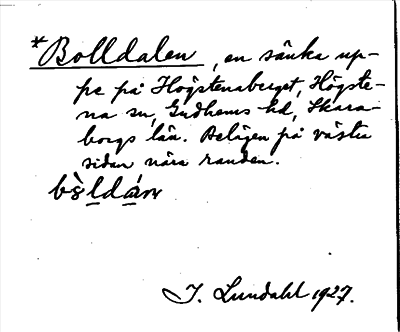 *Bolldalen, en sänka up-
pe på Högstenaberget, Högste-
na sn, Gudhems hd, Skara-
borgs län. Belägen på västra
sidan nära randen.
J. Lundahl 1927.